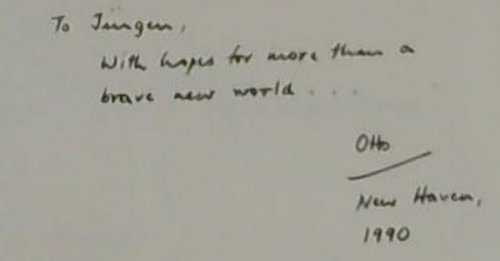 To Jürgen,
With hopes for more than a
brave new world...
Otto
New Haven,
1990